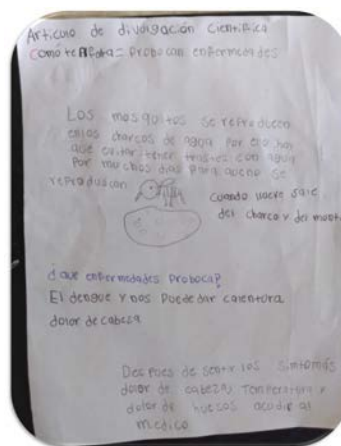 Articulo de divulgación Cientifica
Cómo te Afecta = Probocan enfermedades
Los mosquitos se reproducen
en los charcos de agua por eso hay
que evitar tener trastes con agua
por muchos dias para que no se
reproduscan
Cuando llueve sale
del charco y del monte
¿ que enfermedades Proboca?
El dengue y nos Puede dar calentura
dolor de cabeza
Des pues de sentir los sintomas
dolor de cabeza, Temperatura y
dolor de huesos acudir al
medico